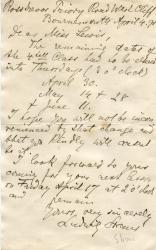 Priory Road West Cliff
Bournemouth April 4.
Dear Miss Lewis,
The remaining dates of
the Class had to be changed
into Thursdays (o'clock)
April 30.
May 14 & 28
& June 11.
I hope you will not be
by that change and
that you kindly will
it.
I look forward to your
coming for your next
on Friday April 17 at 2 o'clock
and remain
Yours very sincerely